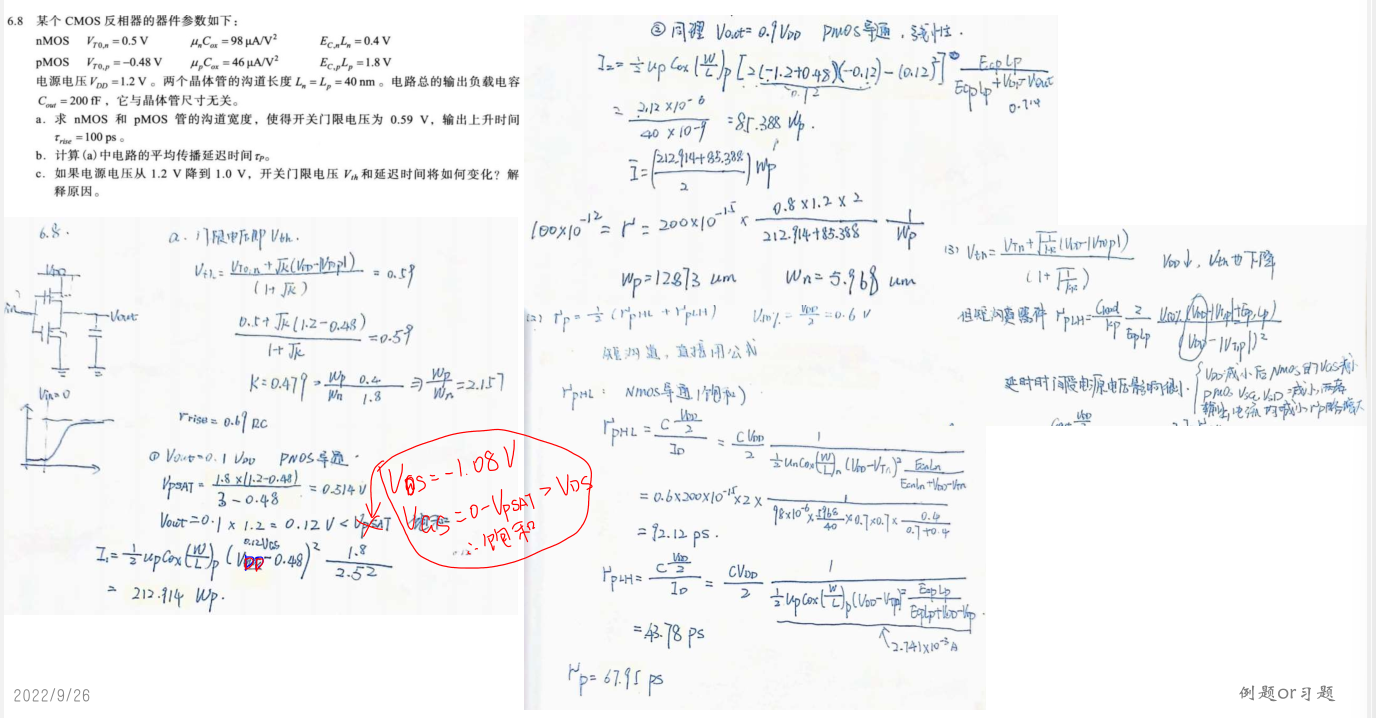 6.8 某个 CMOS 反相器的器件参数如下：
nMOS V_{T0,n} = 0.5 V μ_nC_{ox} = 98 μA/V² E_{C,n}L_n = 0.4 V
pMOS V_{T0,p} = -0.48 V μ_pC_{ox} = 46 μA/V² E_{C,p}L_p = 1.8 V
电源电压 V_{DD} = 1.2 V 。两个晶体管的沟道长度 L_n = L_p = 40 nm 。电路总的输出负载电容
C_{out} = 200 fF ，它与晶体管尺寸无关。
a. 求 nMOS 和 pMOS 管的沟道宽度，使得开关门限电压为 0.59 V，输出上升时间
τ_{rise} = 100 ps 。
b. 计算(a)中电路的平均传播延迟时间 τ_P。
c. 如果电源电压从 1.2 V 降到 1.0 V，开关门限电压 V_{th} 和延迟时间将如何变化？解
释原因。
6.8.
VDD
in
Vout
Vin=0
a. 门限电压即 Vth.
Vth = (VT0,n + √k(VDD-|VT0p|)) / (1+√k) = 0.59
(0.5+√k(1.2-0.48)) / (1+√k) = 0.59
k=0.479 = Wp/Wn 0.4/1.8 ⇒ Wp/Wn = 2.157
τrise = 0.69 RC
① Vout=0.1 VDD PMOS导通.
VPSAT = 1.8×(1.2-0.48) / (3-0.48) = 0.514V
Vout=0.1×1.2=0.12V < VPSAT
I₁ = ½ upCox(W/L)p ( -0.48)² 1.8/2.52
= 212.914 Wp.
VDS=-1.08V
=0-VPSAT > VDS
∴饱和
② 同理 Vout=0.9VDD PMOS导通，线性.
I₂ = ½ up Cox (W/L)p [2(-1.2+0.48)(-0.12)-(0.12)²] EcpLp
= 2.12×10⁻⁶ / 40×10⁻⁹ = 85.388 Wp.
Ī = (212.914+85.388 / 2) Wp
100×10⁻¹² = τ = 200×10⁻¹⁵ × 0.8×1.2×2 / (212.914+85.388) 1/Wp
Wp=12.873 um Wn=5.968 um
(2) τp = ½ (τpHL + τpLH) V50% = VDD/2 = 0.6 V
短沟道，直接用公式
τpHL: NMOS导通(饱和)
τpHL = C VDD/2 / ID = CVDD/2 · 1 / (½ unCox(W/L)n (VDD-VTn)² EcnLn / (EcnLn+VDD-VTn))
= 0.6×200×10⁻¹⁵×2× 1 / (98×10⁻⁶ × 5968/40 × 0.7×0.7× 0.4/(0.7+0.4))
= 92.12 ps.
τpLH = C VDD/2 / ID = CVDD/2 · 1 / (½ upCox(W/L)p (VDD-VTp)² EcpLp / (EcpLp+VDD-VTp))
2.741×10⁻³A
=43.78 ps
τp = 67.95 ps
(3) Vth = (VTn + √(1/kR) (VDD-|VT0p|)) / (1+√(1/kR)) VDD↓, Vth也下降
但短沟道器件 τpLH = Cload/kp 2/EcpLp V50%(VDD-|VTp|+EcpLp) / (VDD-|VTp|)²
延时时间受电源电压影响很小.
VDD减小后NMOS的VGS减小
2022/9/26
例题or习题